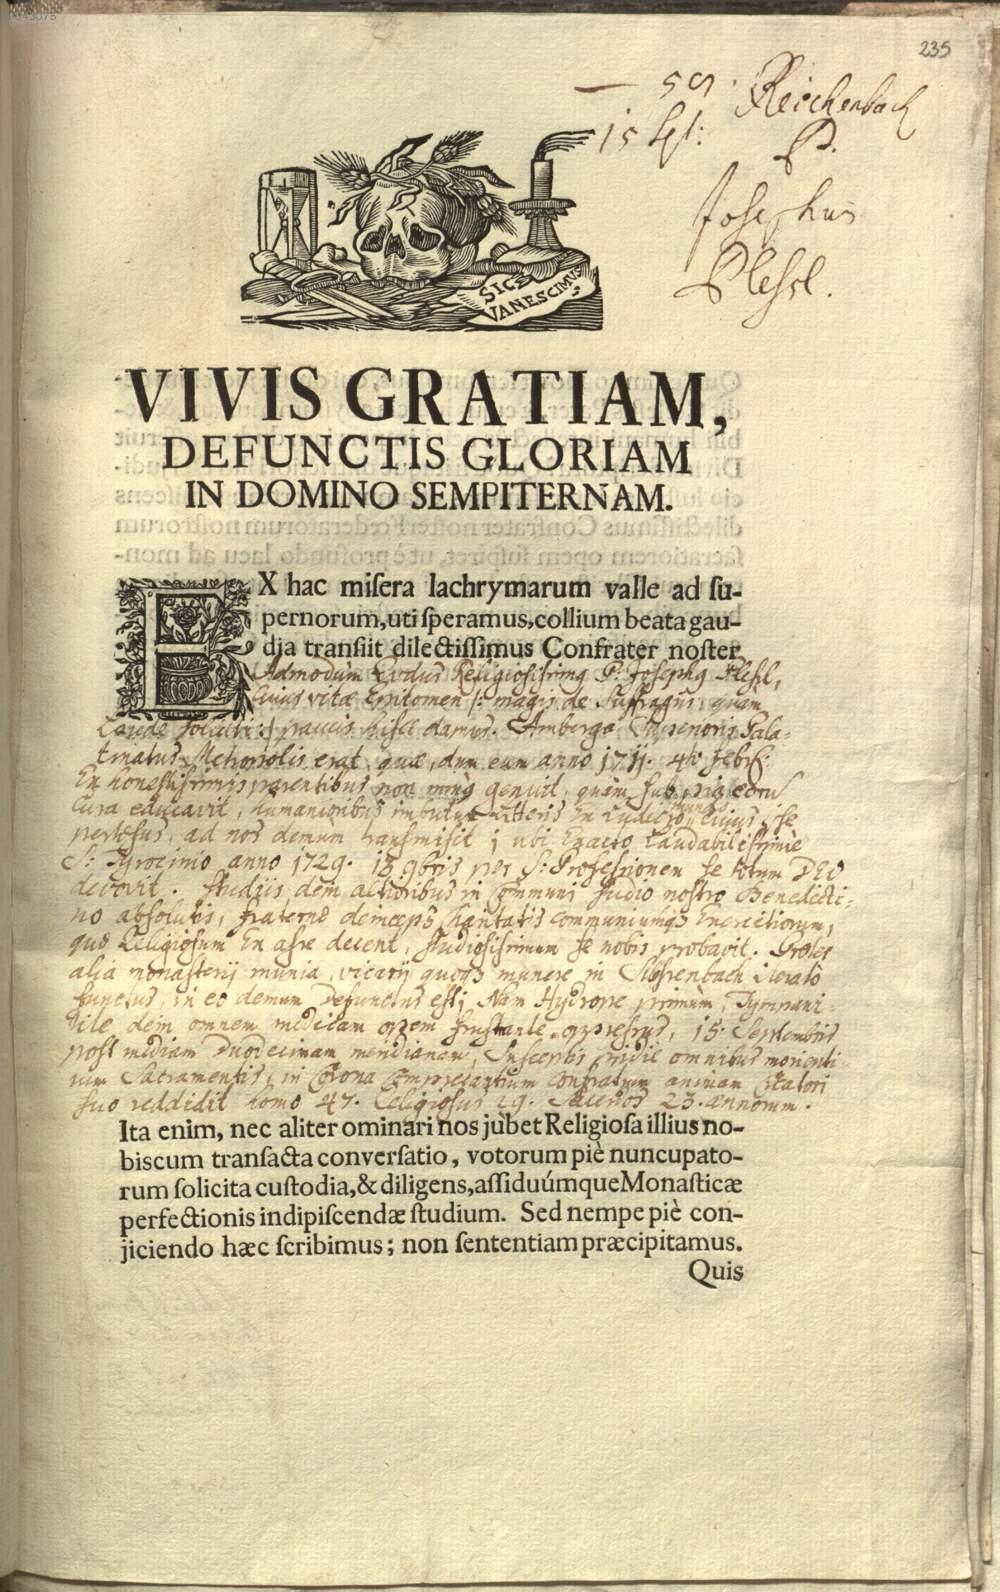 235
— 59. Reichenbach
15 Sept:
P.
Josephus
Plessl.
SIC EVANESCIMUS
VIVIS GRATIAM,
DEFUNCTIS GLORIAM
IN DOMINO SEMPITERNAM.
EX hac miſera lachrymarum valle ad ſu-
pernorum, uti ſperamus, collium beata gau-
dia tranſiit dilectiſſimus Confrater noſter
Admodùm Rvdus Religiosissimus P: Josephus Plessl,
Cuius vitæ Epitomen /: magis de Suffragijs, quam
Laude solliciti :/ paucis hisce damus. Amberga Superioris Pala-
tinatus Metropolis erat, quæ, dum eum anno 1711. 4ta Febr:
Ex honestissimis parentibus non minùs genuit, quàm sub pia eorum
Cura educavit, humanioribus imbutum litteris Ex Ludicro, cuius se
pertæsus, ad nos demum transmisit; ubi Exacto Laudabilissimè
S: Tyrocinio anno 1729. 18 9bris per S: Professionem se totum DEO
devovit. Studijs dein altioribus in Communi studio nostro Benedicti-
no absolutis, fraternæ deinceps charitatis communiumque Exercitiorum,
quæ Religiosum Ex asse decent, studiosissimum se nobis probavit. Præter
alia monasterij munia, vicarij quoque munere in iterato
functus, in eo demum Defunctus est; Nam Hydrope primùm, Tympani-
tide dein omnem medicam opem frustrante oppressus, 15. Septembris
post mediam Duodecimam meridianam, Susceptis pridie omnibus morienti-
um Sacramentis, in Corona Comprecantium Confratrum animam Creatori
suo reddidit homo 47. Religiosus 29. Sacerdos 23. annorum.
Ita enim, nec aliter ominari nos jubet Religioſa illius no-
biscum tranſacta converſatio, votorum piè nuncupato-
rum ſolicita cuſtodia, & diligens, aſſiduúmque Monaſticæ
perfectionis indipiſcendæ ſtudium. Sed nempe piè con-
jiciendo hæc ſcribimus; non ſententiam præcipitamus.
Quis